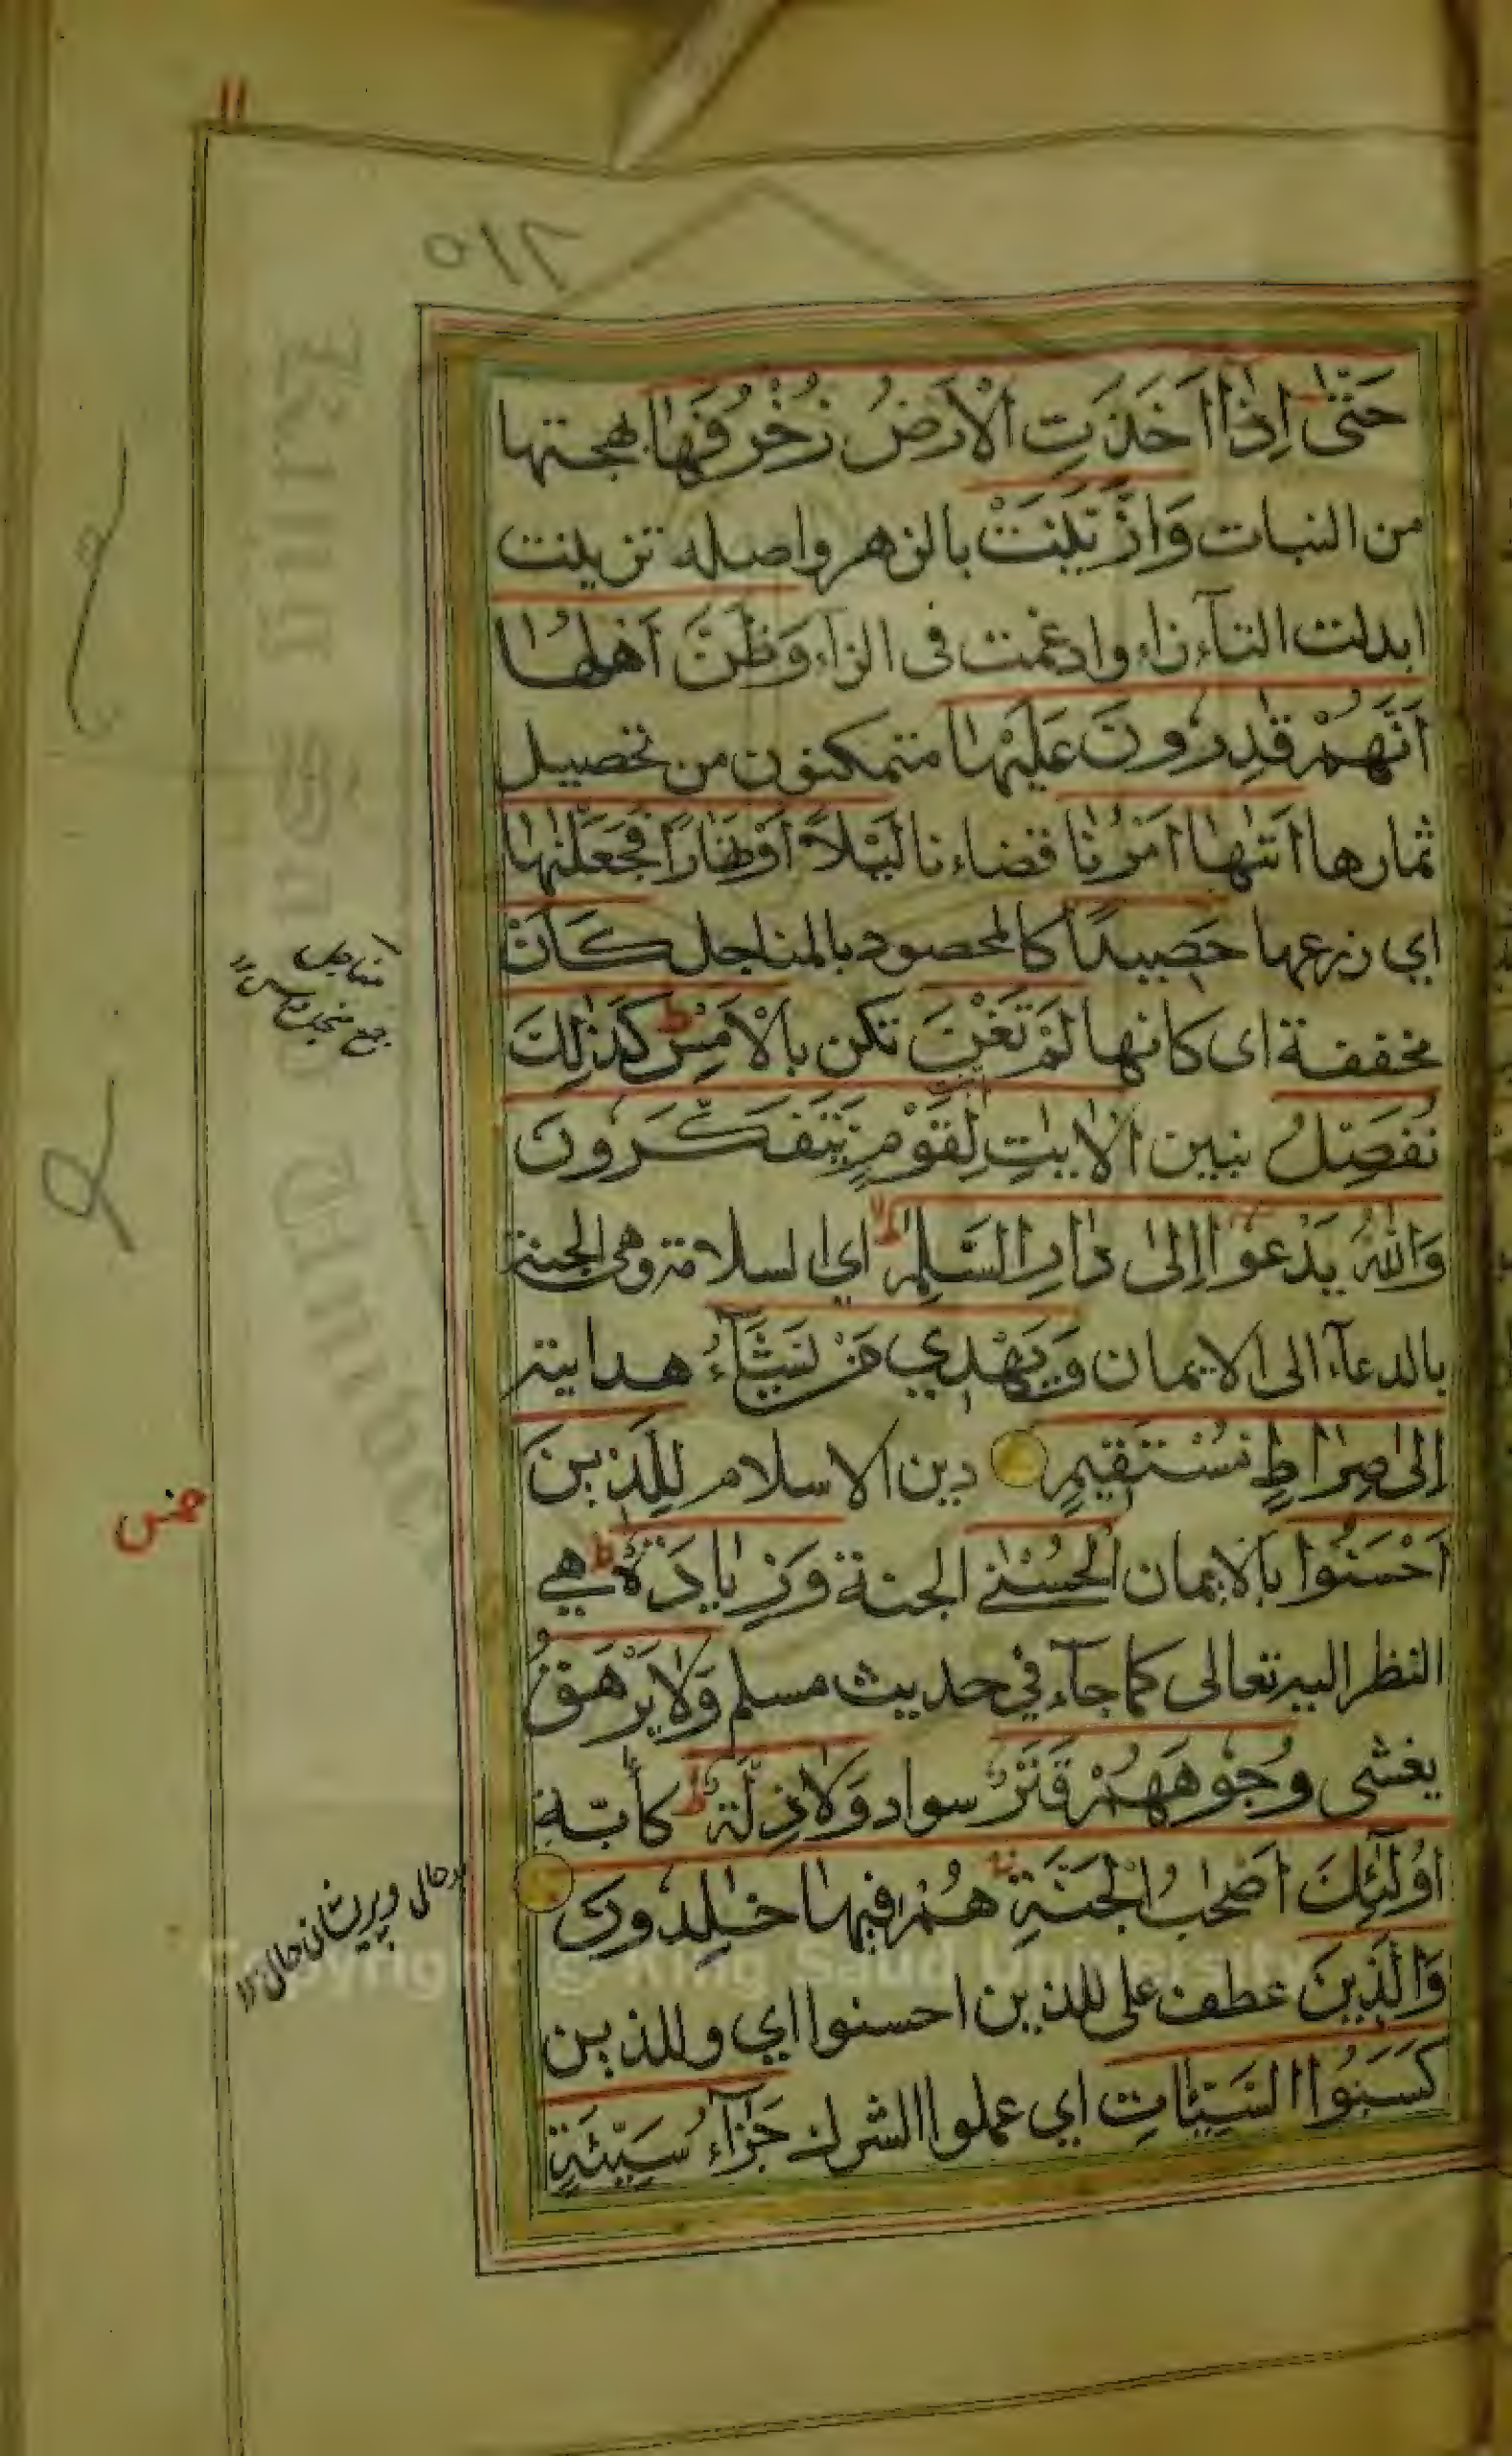 ١١
٥١٢
حَتّٰى اِذَا اَخَذَتِ الْاَرْضُ زُخْرُفَهَا بهجتها
من النبات وَازَّيَّنَتْ بالزهر واصله تزينت
ابدلت التآء زاء وادغمت فى الزاء وَظَنَّ اَهْلُهَا
اَنَّهُمْ قٰدِرُونَ عَلَيْهَا متمكنون من تحصيل
ثمارها اَتٰهَا اَمْرُنَا قضاءنا لَيْلًا اَوْ نَهَارًا فَجَعَلْنٰهَا
اي زرعها حَصِيدًا كالمحصود بالمناجل كَاَنْ
مخففة اى كانها لَمْ تَغْنَ تكن بِالْاَمْسِ ط كَذٰلِكَ
نُفَصِّلُ نبين الْاٰيٰتِ لِقَوْمٍ يَّتَفَكَّرُونَ
وَاللّٰهُ يَدْعُوْا اِلٰى دَارِ السَّلٰمِ ط اي السلامة وهى الجنة
بالدعآء الى الايمان وَيَهْدِي مَنْ يَّشَآءُ هدايته
اِلٰى صِرَاطٍ مُسْتَقِيمٍ دين الاسلام لِلَّذِينَ
اَحْسَنُوا بالايمان الْحُسْنٰى الجنة وَزِيَادَةٌ ط هي
النظر اليه تعالى كما جآء في حديث مسلم وَلَا يَرْهَقُ
يغشى وُجُوهَهُمْ قَتَرٌ سواد وَلَا ذِلَّةٌ ط كأبّة
اُولٰٓئِكَ اَصْحٰبُ الْجَنَّةِ هُمْ فِيهَا خٰلِدُونَ
وَالَّذِينَ عطف على للذين احسنوا اي وللذين
كَسَبُوا السَّيِّاٰتِ اي عملوا الشرك جَزَآءُ سَيِّئَةٍ
مناجل
جمع منجل
بدحالى وپريشانى حال ١٢
Copyright © King Saud University